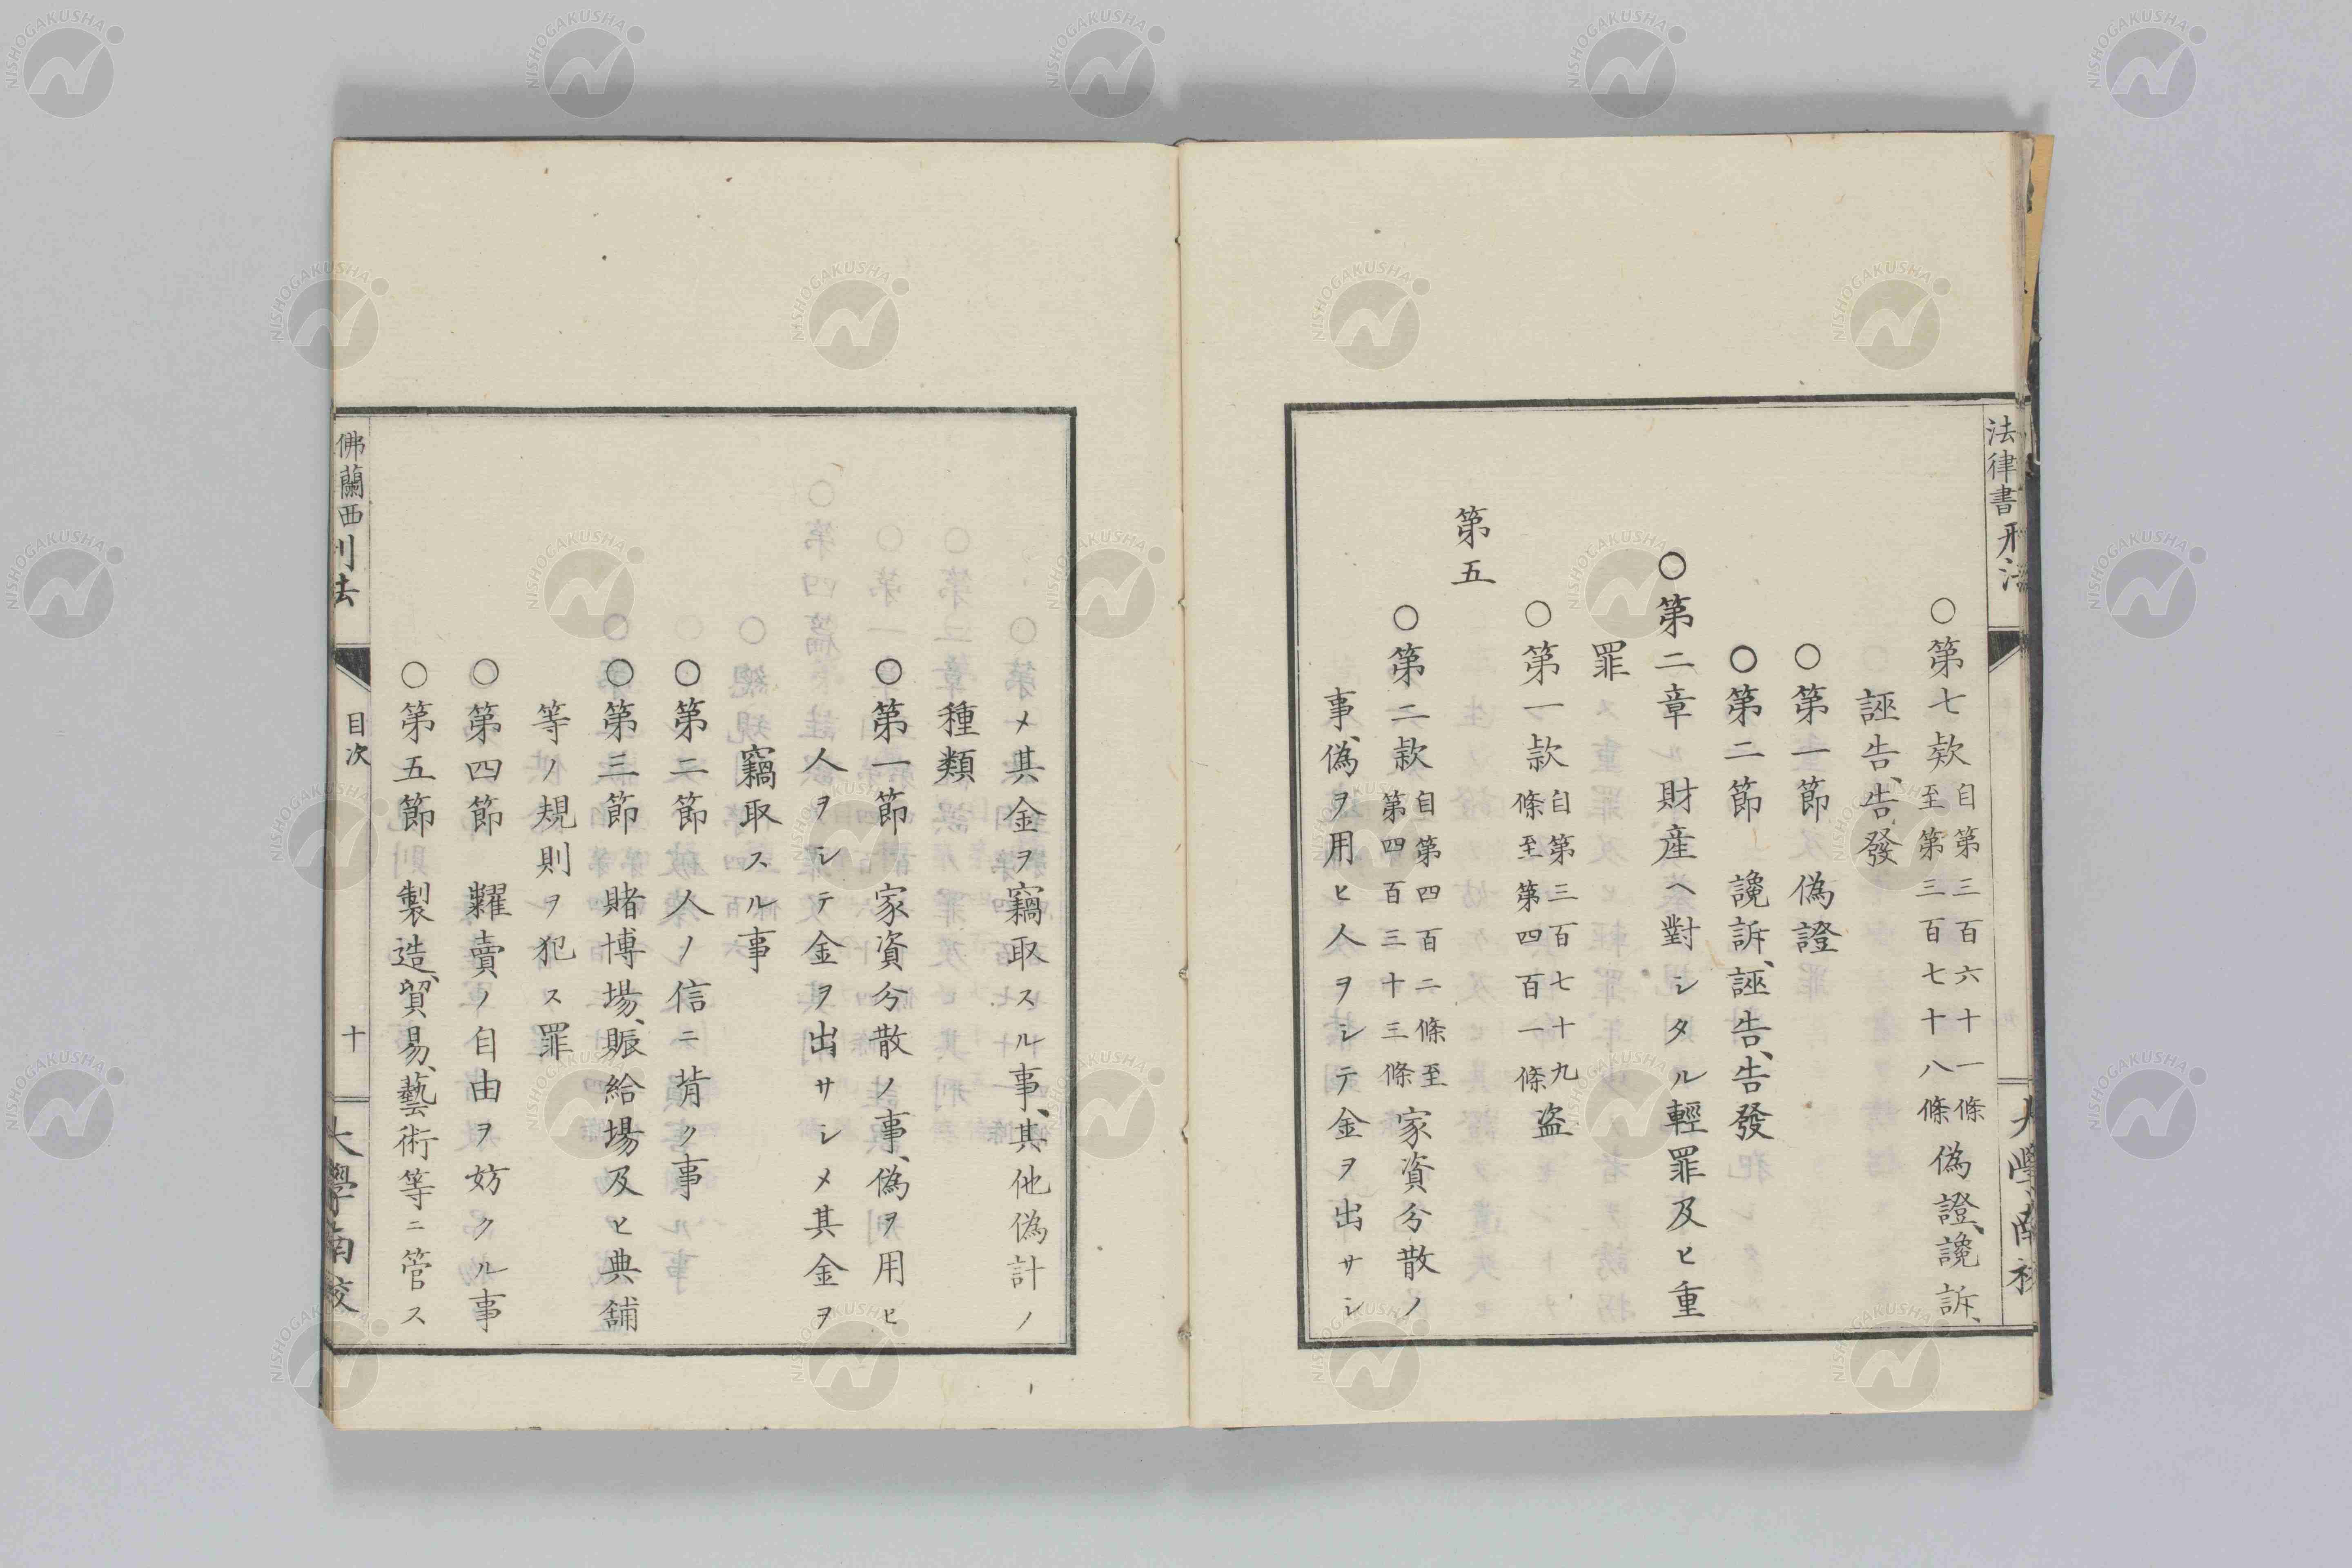 法律書刑法
大學南校
○第七欵自第三百六十一條至第三百七十八條偽證、讒訴、
誣告、告發
○第一節　偽證
○第二節　讒訴、誣告、告發
○第二章　財産ヘ對シタル輕罪及ヒ重
罪
○第一款自第三百七十九條至第四百一條盗
第五
○第二款自第四百二條至第四百三十三條家資分散ノ
事、偽ヲ用ヒ人ヲシテ金ヲ出サシ
メ其金ヲ竊取スル事、其他偽計ノ
種類
○第一節　家資分散ノ事、偽ヲ用ヒ
人ヲシテ金ヲ出サシメ其金ヲ
竊取スル事
○第二節　人ノ信ニ背ク事
○第三節　賭博場、賑給場及ヒ典舖
等ノ規則ヲ犯ス罪
○第四節　糶賣ノ自由ヲ妨クル事
○第五節　製造、貿易、藝術等ニ管ス
佛蘭西刑法
目次
十
大學南校
NISHOGAKUSHA